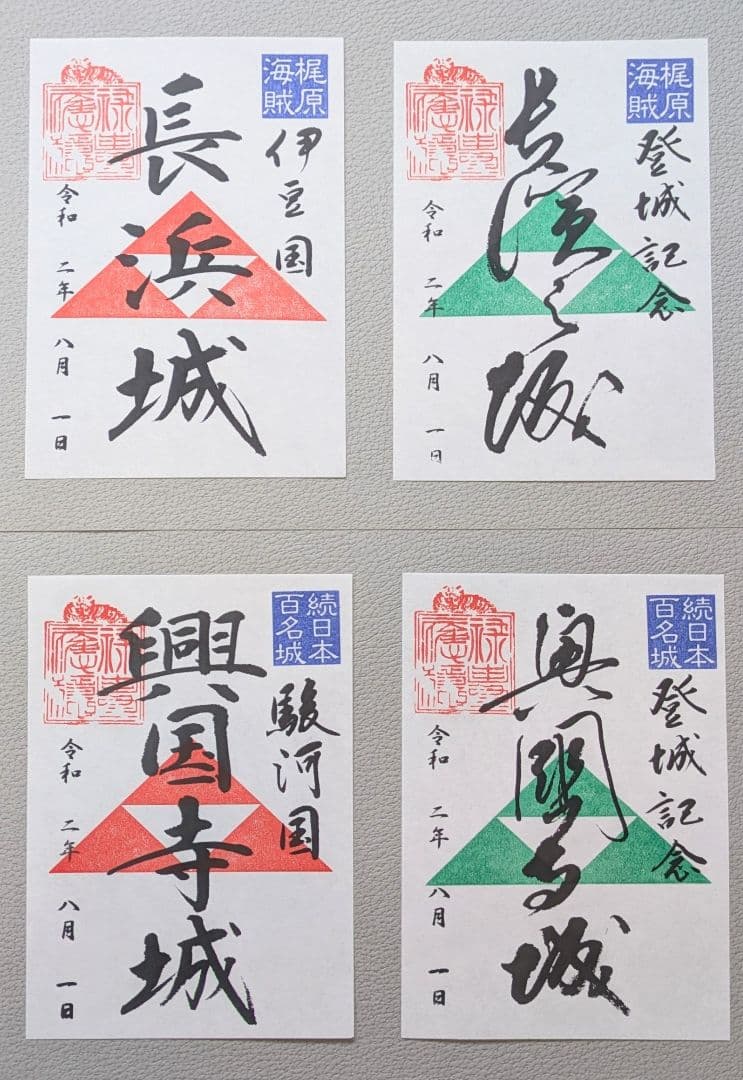 梶原
海賊
伊豆国
長浜城
禄壽
應穩
令和 二年 八月 一日
梶原
海賊
登城記念
長濱之城
禄壽
應穩
令和 二年 八月 一日
続日本
百名城
駿河国
興国寺城
禄壽
應穩
令和 二年 八月 一日
続日本
百名城
登城記念
興圀寺城
禄壽
應穩
令和 二年 八月 一日